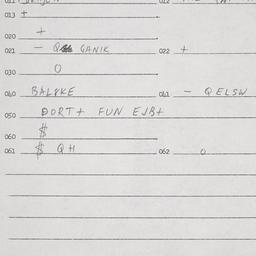 013 +
020 +
021 - GANIK 022 +
030 0
040 BALSKE 041 - QELSW
050 DORT+ FUN EJB+
060 $
061 $ QH 062 0